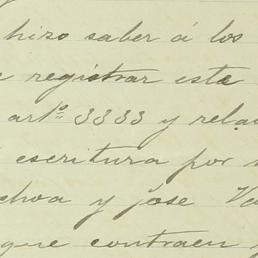 hizo saber á los
registrar esta
artº 3333 y rela
escritura por
choa y jose Va
que contraen